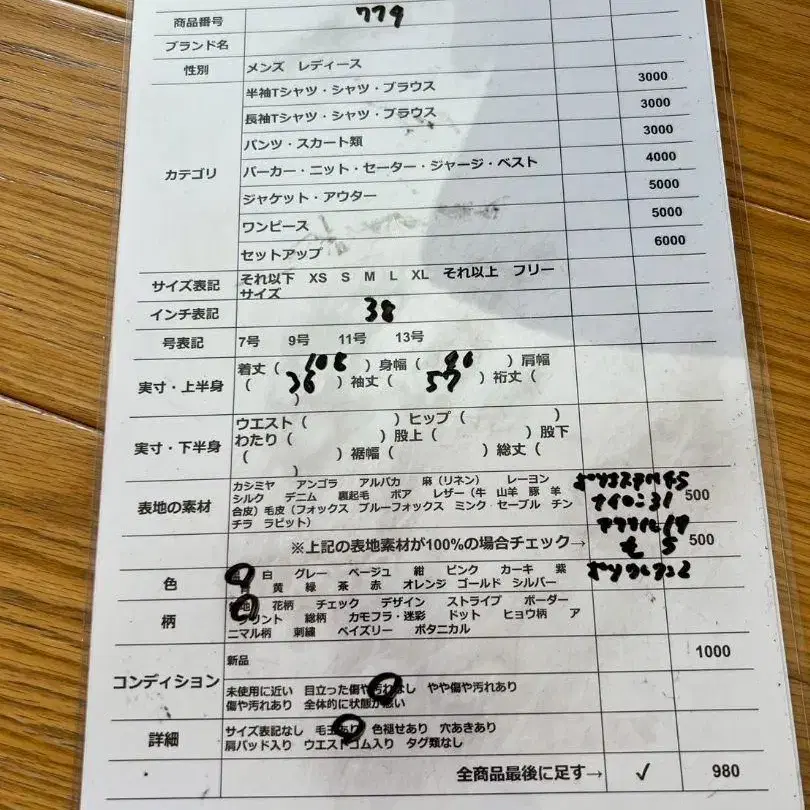 商品番号 779
ブランド名
性別 メンズ レディース
半袖Tシャツ・シャツ・ブラウス 3000
長袖Tシャツ・シャツ・ブラウス 3000
パンツ・スカート類 3000
カテゴリ パーカー・ニット・セーター・ジャージ・ベスト 4000
ジャケット・アウター 5000
ワンピース 5000
セットアップ 6000
サイズ表記 それ以下 XS S M L XL それ以上 フリー
サイズ
インチ表記 38
号表記 7号 9号 11号 13号
実寸・上半身 着丈( 108 )身幅( 46 )肩幅
( 36 )袖丈( 57 )裄丈(
)
実寸・下半身 ウエスト( )ヒップ( )
わたり( )股上( )股下
( )裾幅( )総丈(
)
表地の素材 カシミヤ アンゴラ アルパカ 麻(リネン) レーヨン
シルク デニム 裏起毛 ボア レザー(牛 山羊 豚 羊
合皮)毛皮(フォックス ブルーフォックス ミンク・セーブル チン
チラ ラビット)
ポリエステル45
ナイロン31 500
アクリル17
※上記の表地素材が100%の場合チェック→ 毛 5 500
ポリウレタン2
色 白 グレー ベージュ 紺 ピンク カーキ 紫
黄 緑 茶 赤 オレンジ ゴールド シルバー
柄 花柄 チェック デザイン ストライプ ボーダー
プリント 総柄 カモフラ・迷彩 ドット ヒョウ柄 ア
ニマル柄 刺繍 ペイズリー ボタニカル
コンディション 新品 1000
未使用に近い 目立った傷や汚れなし やや傷や汚れあり
傷や汚れあり 全体的に状態が悪い
詳細 サイズ表記なし 毛玉あり 色褪せあり 穴あきあり
肩パッド入り ウエストゴム入り タグ類なし
全商品最後に足す→ ✓ 980